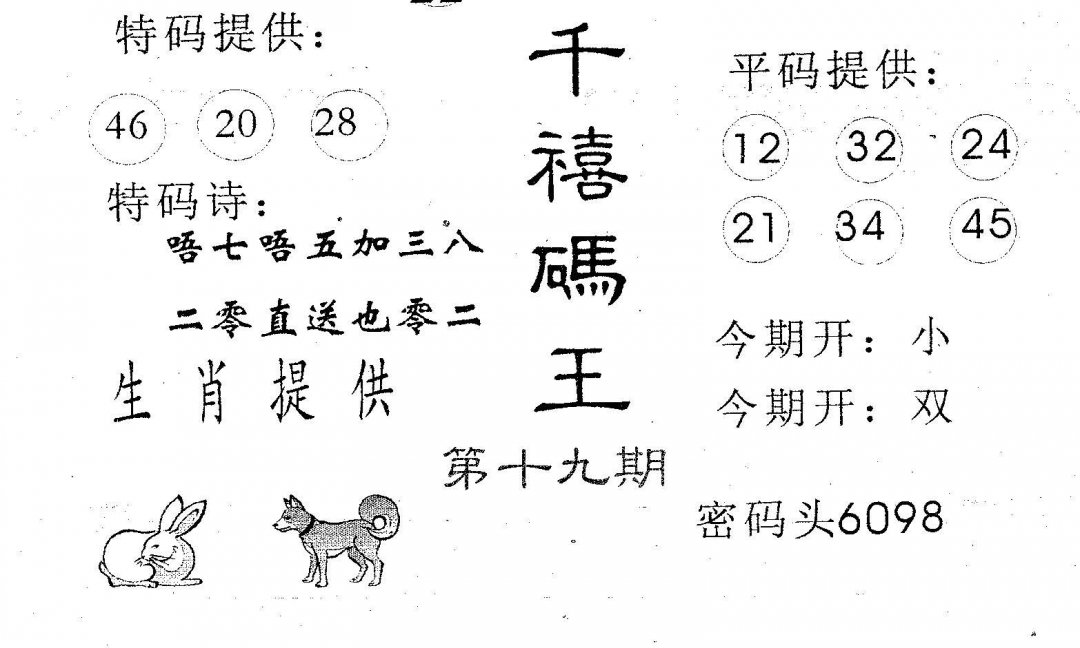 特码提供：
46 20 28
特码诗：
唔七唔五加三八
二零直送也零二
生肖提供
千禧碼王
第十九期
平码提供：
12 32 24
21 34 45
今期开：小
今期开：双
密码头6098